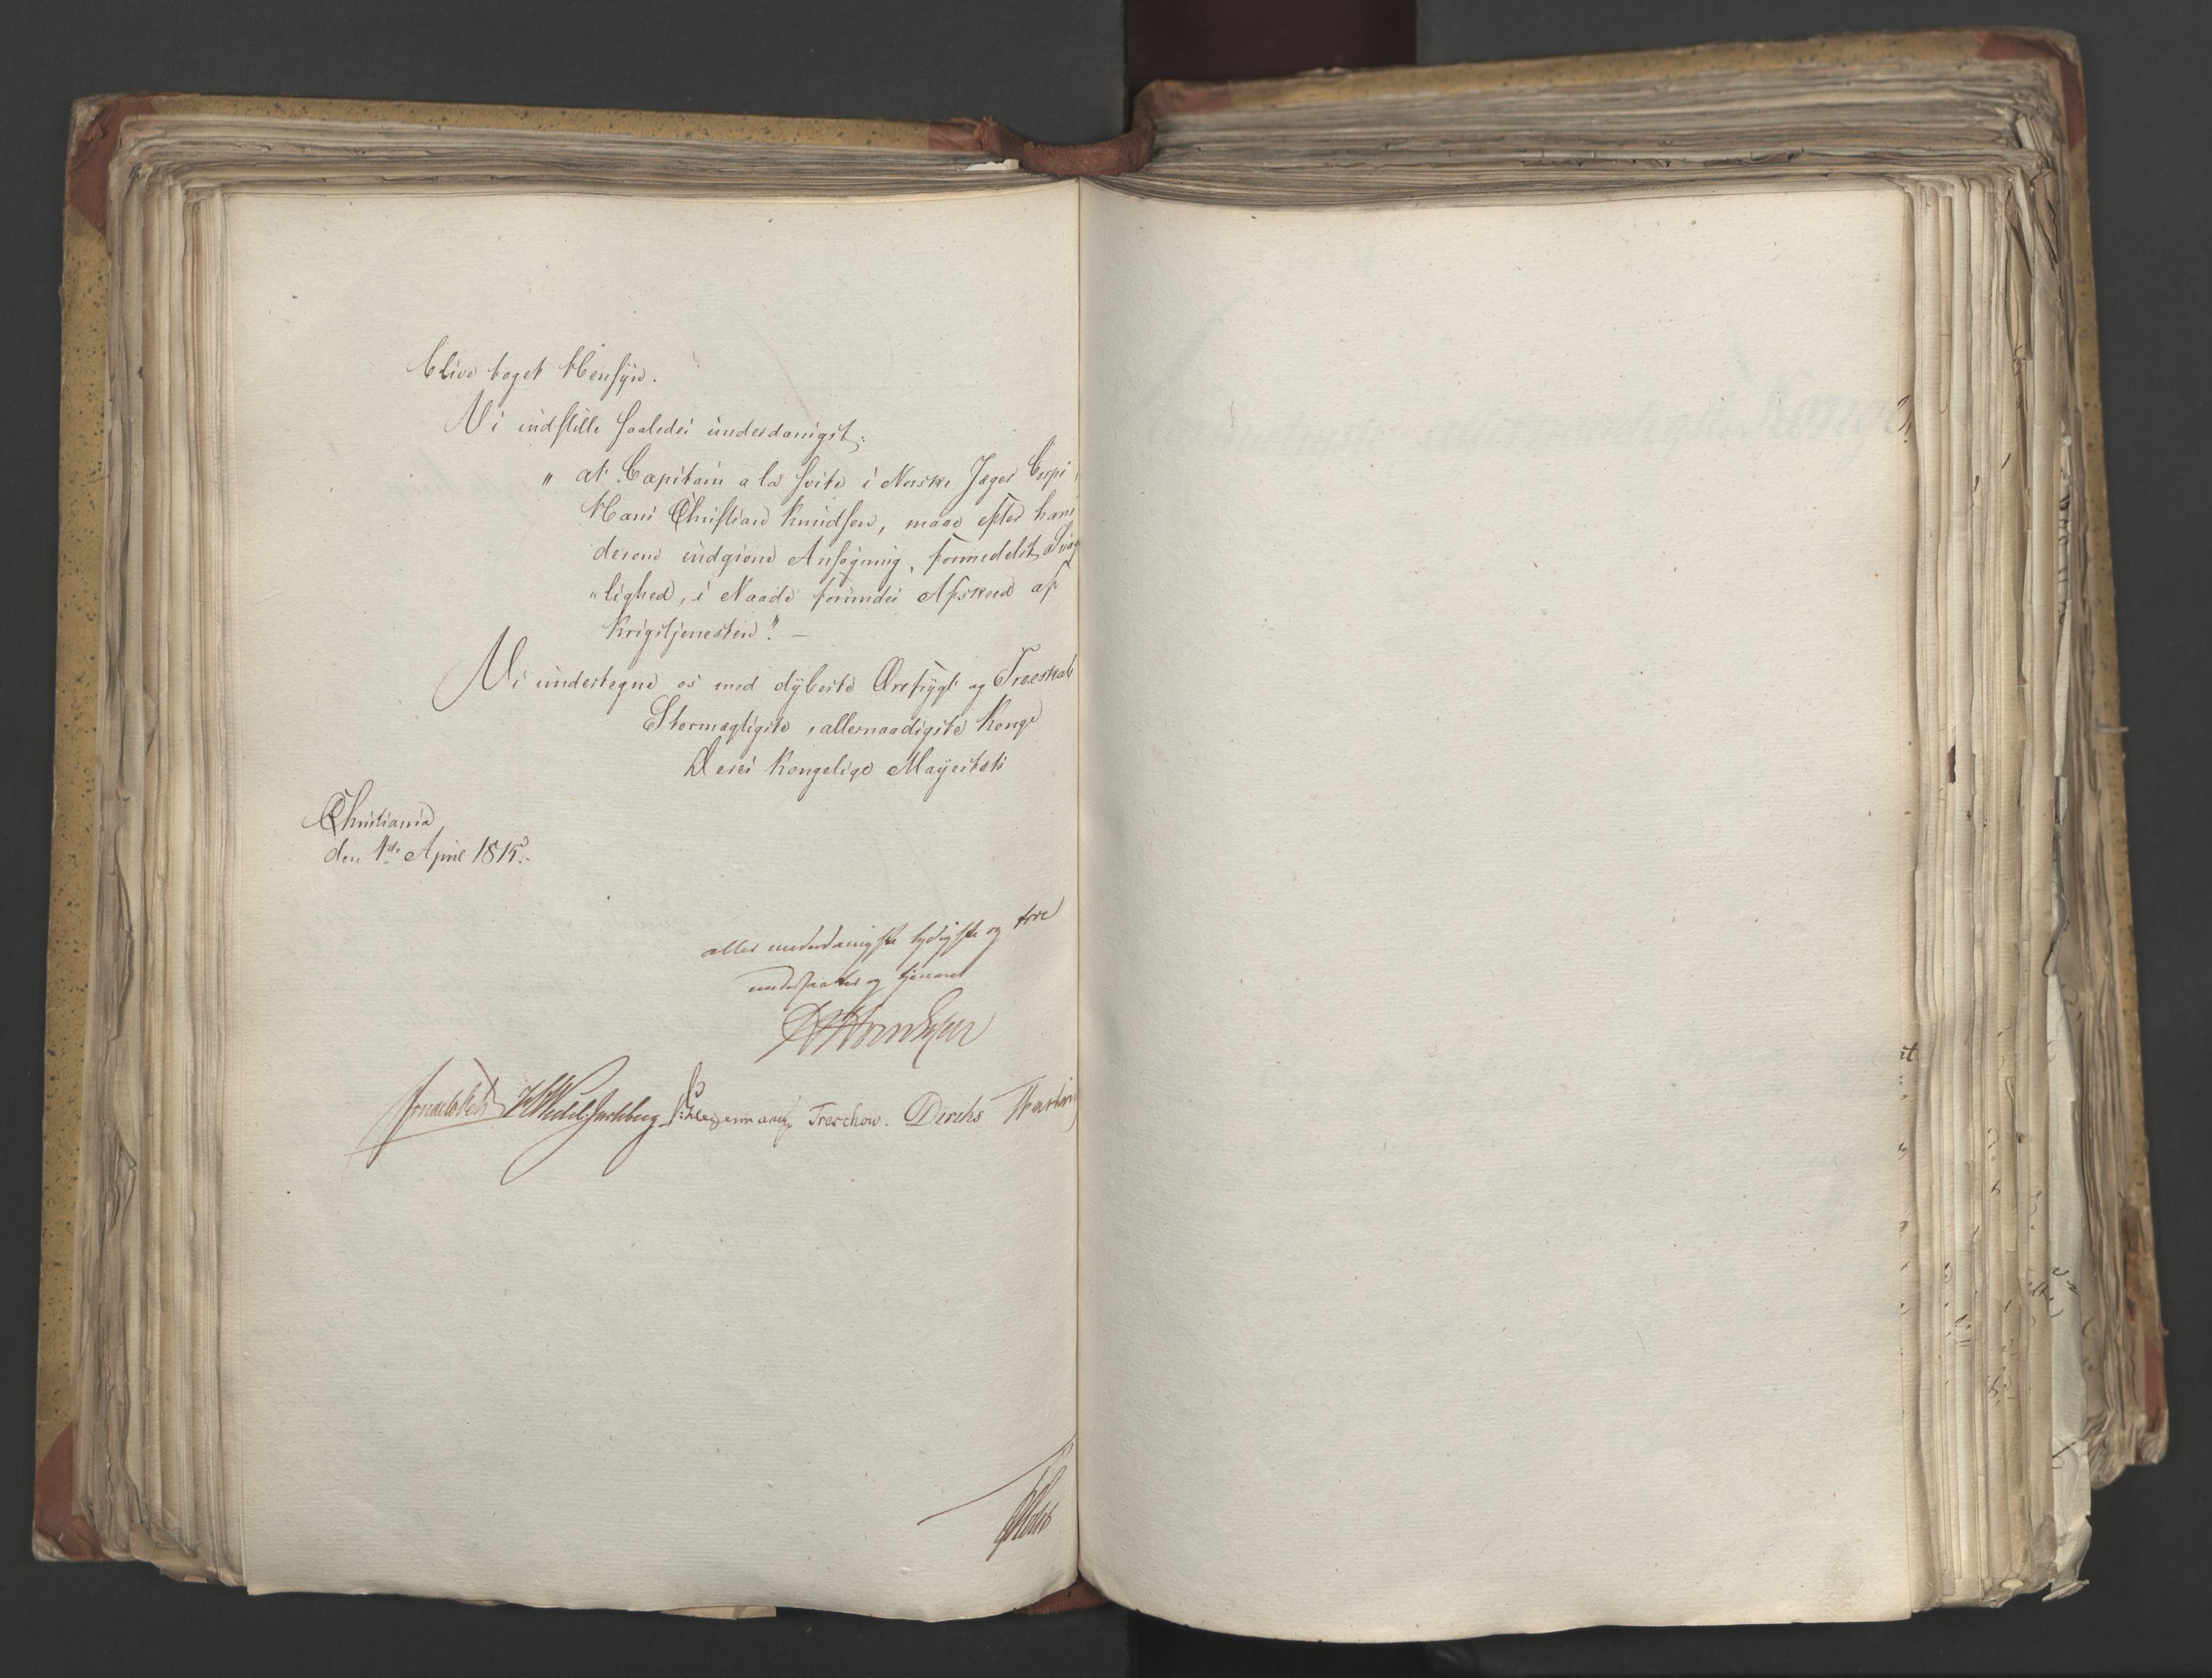 blive taget Hensyn.
Vi indstille saaledes underdanigst:
" at Capitain a la Svite i Norske Jæger Corps,
Hans Christian Knudsen, maae efter hans
derom indgivne Ansøgning, formedelst Svag
"lighed, i Naade forundes Afskeed af
Krigstjenesten". —
Vi undertegne os med dybeste Ærefrygt og Troeskab
Stormægtigste, allernaadigste Konge
Deres Kongelige Mayestæts
Christiania
den 1ste April 1815.
aller underdanigste lydigste og troe
undersaatter og tjenere
Sommerhielm Wedel Jarlsberg Treschow. Diriks
Konge